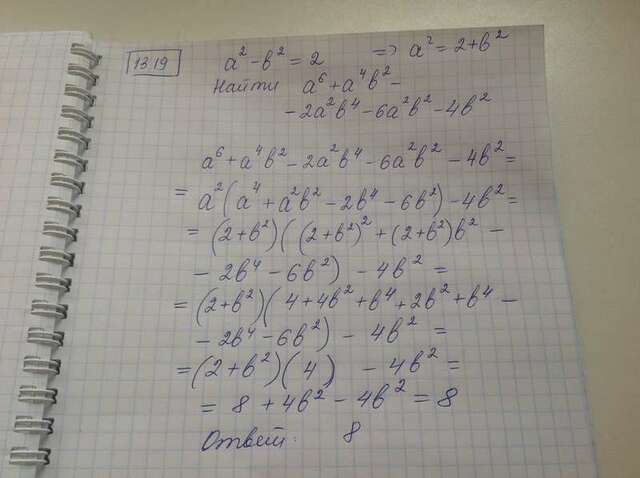 13.19 a² - b² = 2 => a² = 2+b²
Найти a⁶ + a⁴b² -
- 2a²b⁴ - 6a²b² - 4b²
a⁶ + a⁴b² - 2a²b⁴ - 6a²b² - 4b² =
= a²(a⁴ + a²b² - 2b⁴ - 6b²) - 4b² =
= (2+b²)((2+b²)² + (2+b²)b² -
- 2b⁴ - 6b²) - 4b² =
= (2+b²)(4+4b²+b⁴+2b²+b⁴ -
- 2b⁴ - 6b²) - 4b² =
= (2+b²)(4) - 4b² =
= 8 + 4b² - 4b² = 8
Ответ: 8